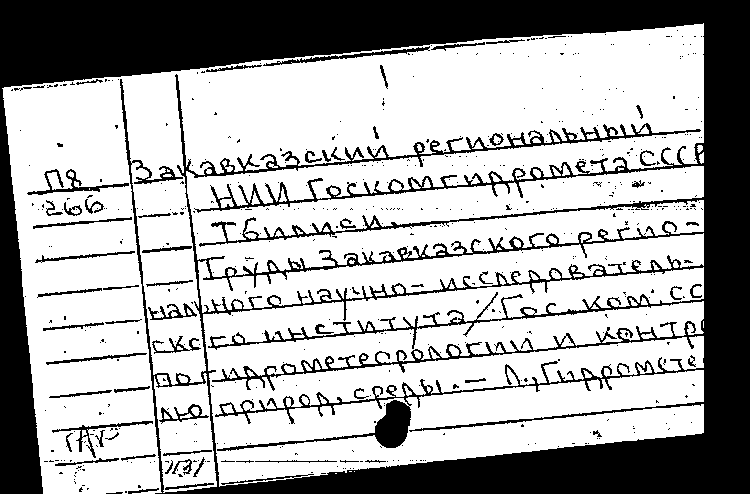 П8
266
Закавказский региональный
НИИ Госкомгидромета СССР
Тбилиси.
Труды Закавказского регио-
нального научно-исследователь-
ского института / Гос. ком. СС
по гидрометеорологии и контро
лю природ. среды. — Л., Гидромете
1131